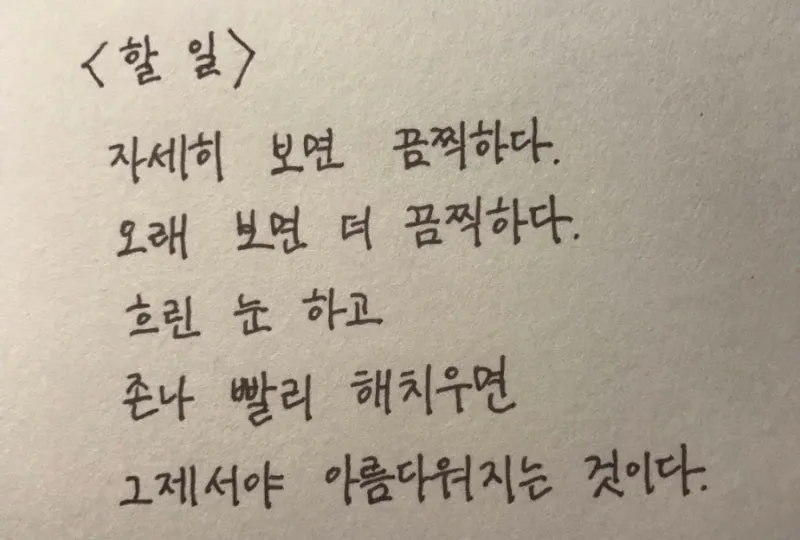 <할 일>
자세히 보면 끔찍하다.
오래 보면 더 끔찍하다.
흐린 눈 하고
존나 빨리 해치우면
그제서야 아름다워지는 것이다.